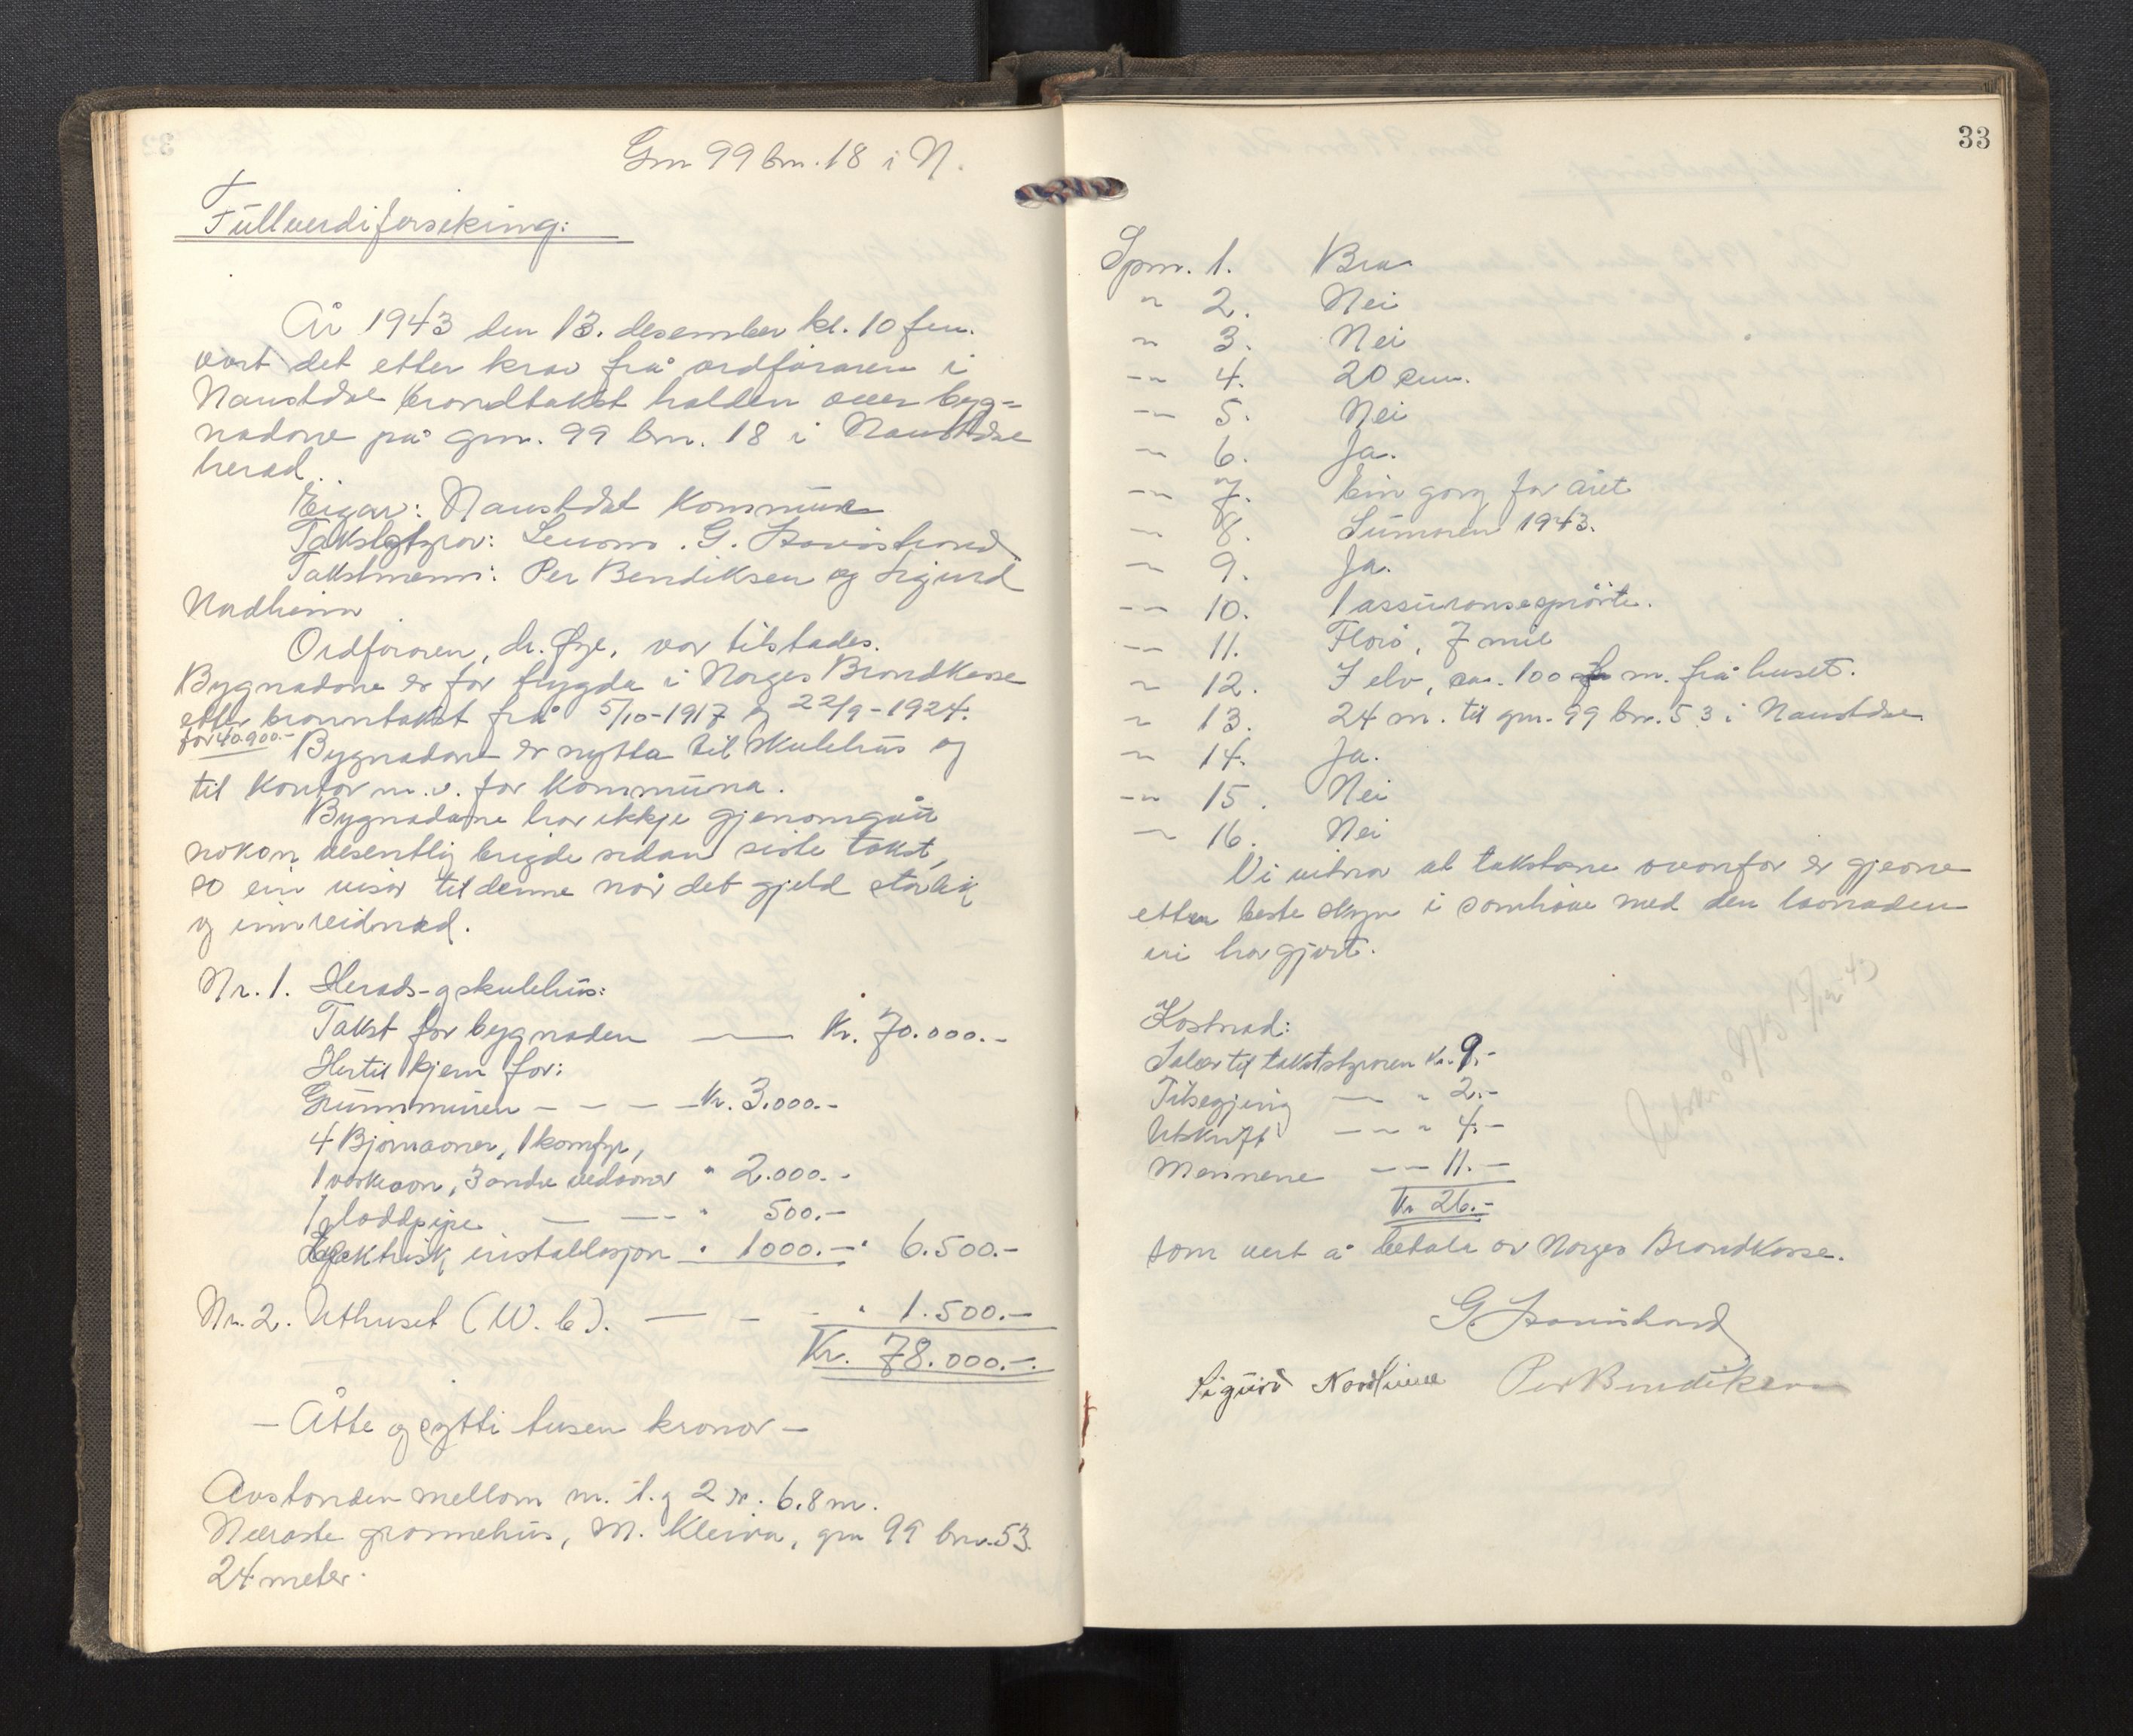 Gm 99 bm. 18 i N.
Fullverdiforsikring:
År 1943 den 13. desember kl. 10 fm.
vart det etter krav frå ordføraren i
Naustdal branntakst halden over byg=
nadone på gm. 99 bm. 18 i Naustdal
herad.
Eigar: Naustdal kommune
Takststyrar: Lensm. G.
Takstmenn: Per Bendiksen og Sigurd
Nordheim
Ordføraren, dr. Øye, var tilstades.
Bygnadone er for trygda i Norges Brandkasse
etter branntakst frå 5/10-1917 og 22/9-1924.
for 40.900.-
Bygnadone er nytta til skulehus og
til kontor m.v. for kommuna.
Bygnadane har ikkje gjenomgått
nokon vesentlig brigde sidan siste takst,
so ein viser til denne når det gjeld storleik
og innreidnad.
Nr. 1. Herads- og skulehus:
Takst for bygnaden — Kr. 70.000.-
Hertil kjem for:
Grunnmuren - - - - Kr. 3.000.-
4 Bjørnaoner, 1 komfyr,
1 vaskeaon, 3 andre vedaoner " 2.000.-
1 loddpipe — — - " 500.-
Elektrisk installasjon " 1000.- " 6.500.-
Nr. 2. Uthuset (W.C). — - - " 1.500.-
Kr. 78.000.-
- Åtte og sytti tusen kronor -
Avstanden mellom nr. 1 og 2 er 6.8 m.
Næraste grannehus, M. Kleiva, gm 99 bm. 53.
24 meter.
33
Spm. 1. Bra
" 2. Nei
" 3. Nei
-" 4. 20 cm.
-" 5. Nei
" 6. Ja.
-" 7. Ein gong for året
" 8. Sumaren 1943.
" 9. Ja.
-" 10. 1 assuransesprøite.
-" 11. Florø, 7 mil
" 12. I elv, ca. 100 m. frå huset.
" 13. 24 m. til gm. 99 bm. 53 i Naustdal
" 14. Ja.
-" 15. Nei
" 16. Nei
Vi vitnar at takstane ovanfor er gjevne
etter beste skyn i samhøve med den lovnaden
vi har gjort.
Utskr. N.B. 15/12-43
Kostnad:
Salær til takststyraren Kr. 9.-
Tilsegjing — " 2.-
Utskrift — " " 4.-
Mennene — — 11.-
Kr 26.-
som vert å betala av Norges Brandkasse.
G.
Sigurd Nordheim Per Bendiksen